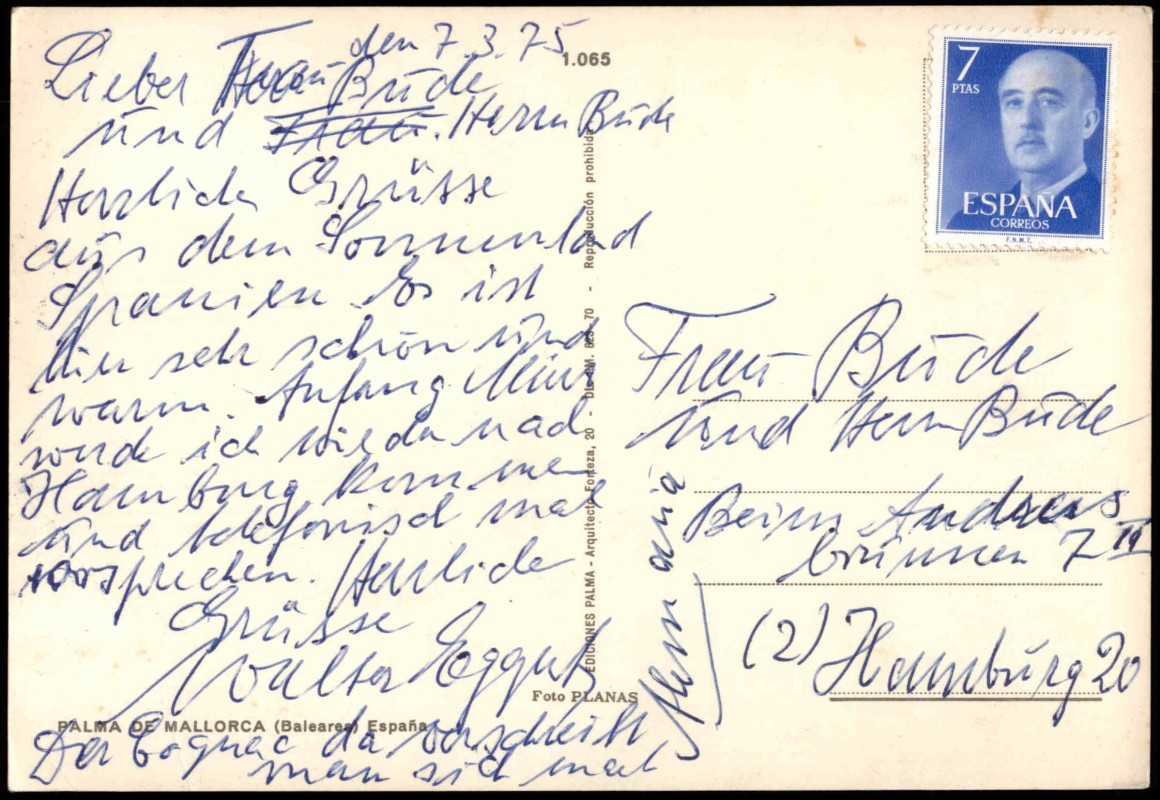 den 7.3.75
Lieber Frau Bude
und Frau. Herrn Bude
Herzliche Grüsse
aus dem Sonnenland
Spanien. Es ist
hier sehr schön und
warm. Anfang
werde ich wieder nach
Hamburg kommen
und telefonisch mal
vorsprechen. Herzliche
Grüsse
Walter Eggert
Der Cognac da verschreibt
man sich mal
1.065
EDICIONES PALMA - Arquitecto Forteza, 20 - DL. PM. 823 - 70 - Reproducción prohibida
Foto PLANAS
PALMA DE MALLORCA (Baleares) España
7
PTAS
ESPAÑA
CORREOS
F.N.M.T.
Frau Bude
und Herrn Bude
Beim Andreas
brunnen 7 II
(2) Hamburg 20